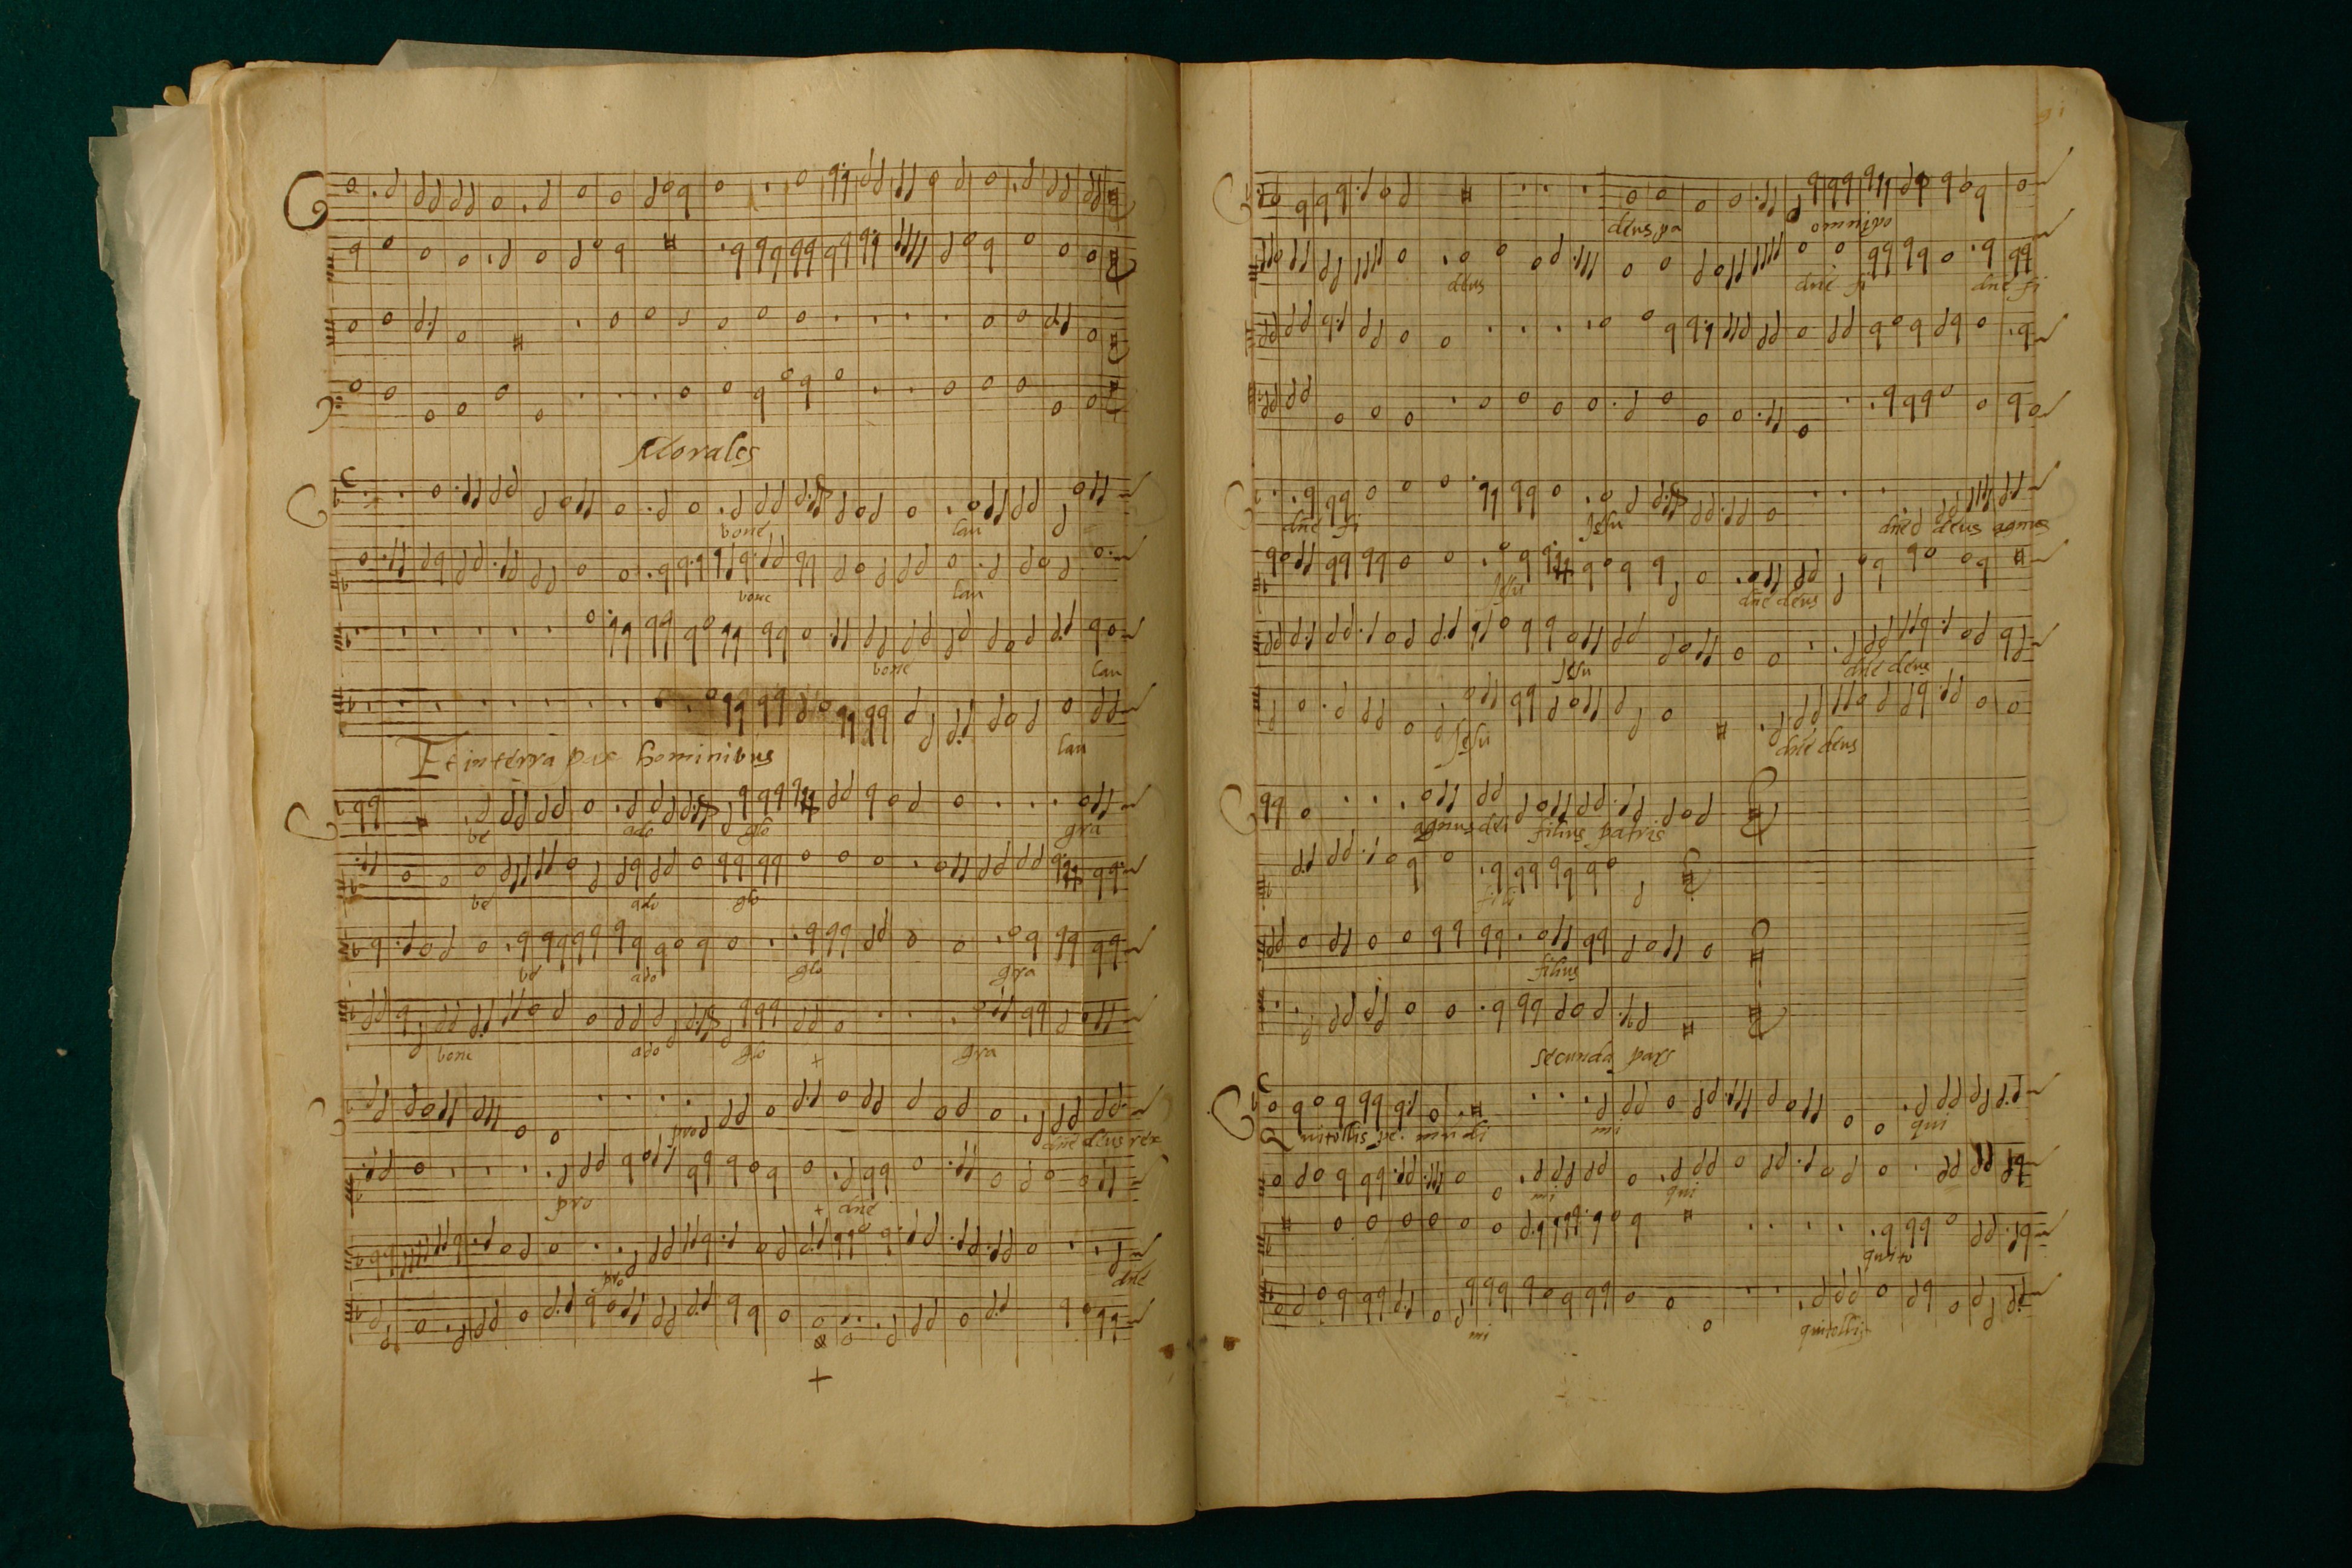 Morales
bone lau
bone lau
bone lau
lau
Et in terra pax hominibus
be ado glo gra
be ado glo
be ado glo gra
bone ado glo gra
pro dne deus rex
pro dne
pro dne
deus pa omnipo
deus dne fi dne fi
dne fi Jesu dne deus agnus
Jesu dne deus
Jesu dne deus
Jesu dne deus
agnus dei filius patris
fili
filius
secunda pars
Qui tollis pe. mundi mi qui
mi qui
quito
mi qui tollis